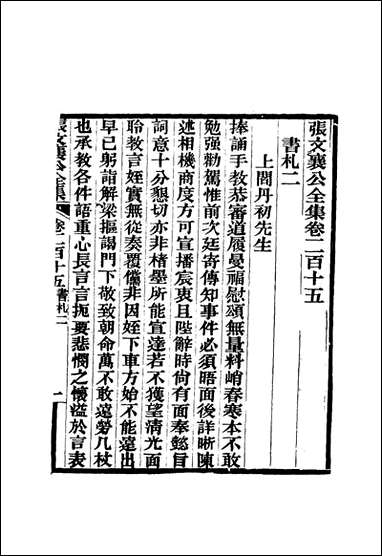 張文襄公全集卷二百十五
書札二
上閻丹初先生
捧誦手教恭審道履曼福慰頌無量料峭春寒本不敢
勉强勸駕惟前次廷寄傳知事件必須晤面後詳晰陳
述相機商度方可宣播宸衷且陛辭時尚有面奉懿旨
詞意十分懇切亦非楮墨所能宣達若不獲望清光面
聆教言姪實無從奏覆儻非因姪下車方始不能遠出
早已躬詣解梁摳謁門下敬致朝命萬不敢遠勞几杖
也承教各件語重心長言言扼要悲憫之懷溢於言表
張文襄公全集 卷二百十五 書札二 一